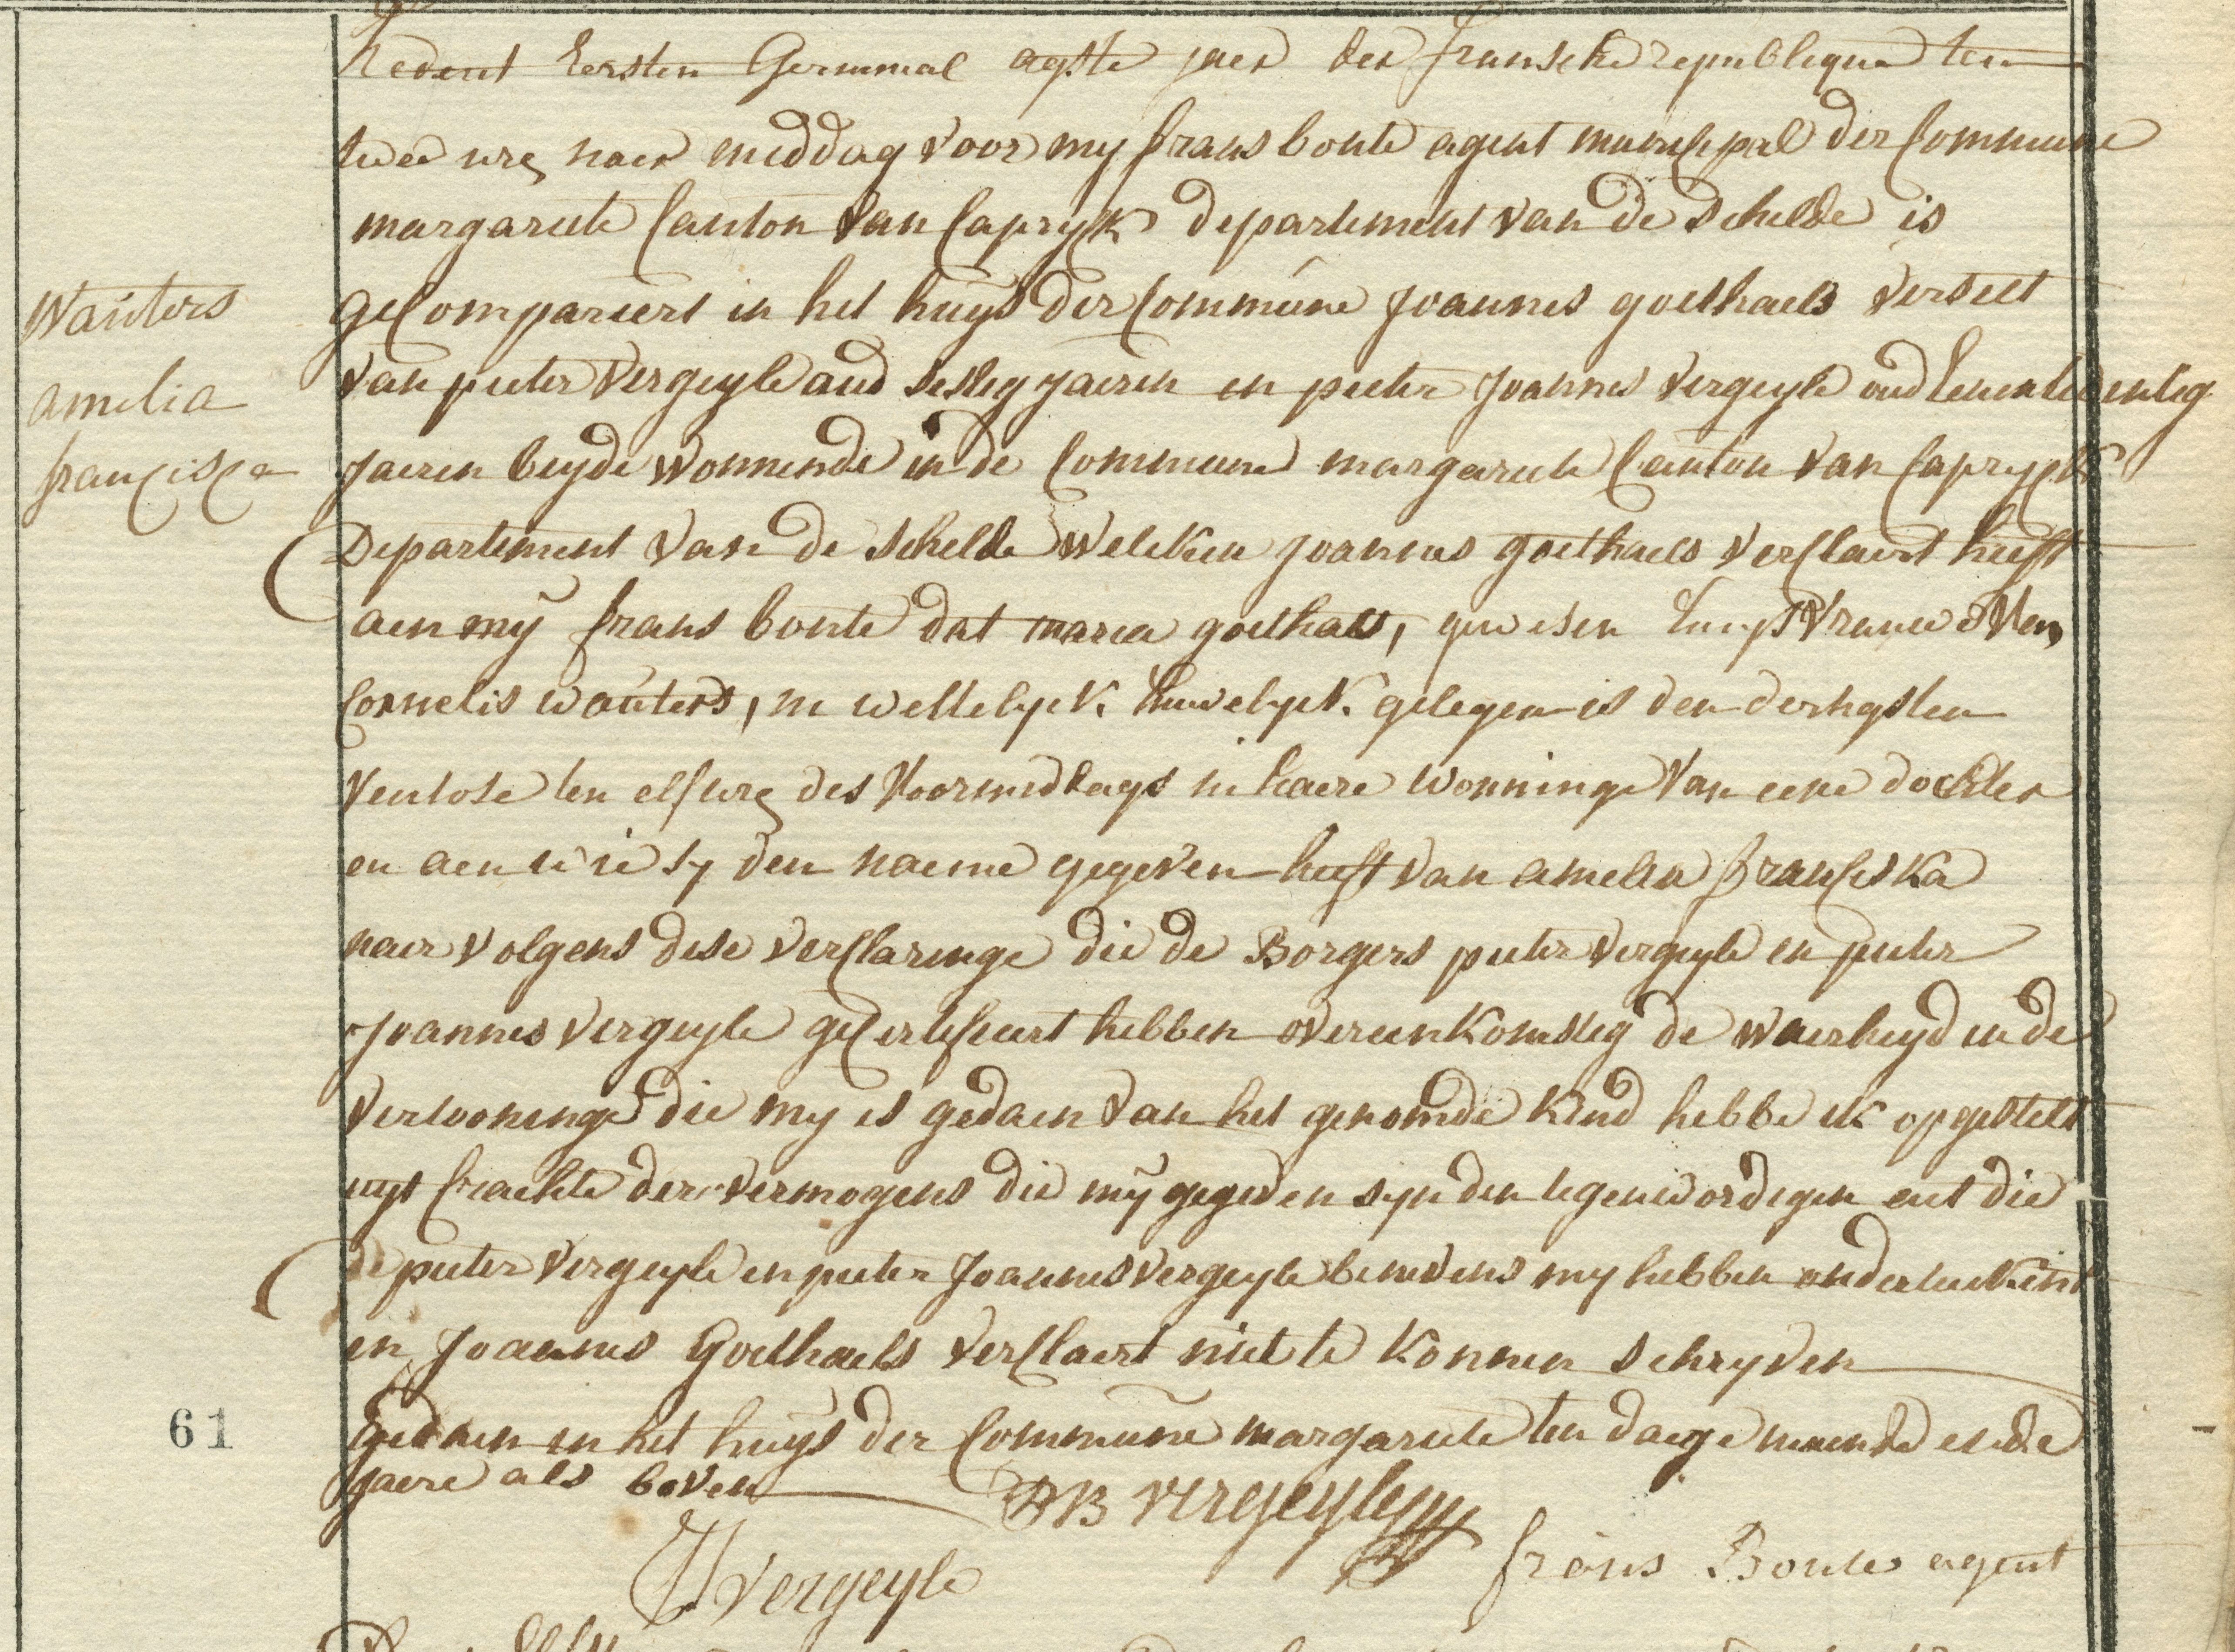 Wauters
amelia
francisca
61
hedent Eersten Germinal agste jaer der fransche republique ten
twee ure naer middag voor my frans bonte agent municipal der Commune
margariete Canton van Capryck departement van de schelde is
geCompareert in het huys der Commune Joannes goethaels verselt
van pieter vergeyle aud sestig jaeren en pieter Joannes vergeyle oud
jaeren beyde wonnende in de Commune margariete Canton van Capryck
Departement van de schelde welcken joannes goethaels verClaert heeft
aen my frans bonte dat maria goethals, gewesen huysvrauwe van
Cornelis wauters, in wettelyck huwelyck gelegen is den dertigsten
ventose ten elf ure des voormidtags in haere wonninge van eene dochter
en aen wie sy den naeme gegeven heeft van amelia franciska
naer volgens dese verClaringe die de Borgers pieter vergeyle en pieter
Joannes vergeyle geCertificeert hebben overeenkomstig de waerheyd en de
vertooninge die my is gedaen van het genomde kind hebbe ik opgestelt
uyt krachte der vermogens die my gegeven syn den tegenwordigen act die
de pieter vergeyle en pieter Joannes vergeyle benevens my hebben onderteekent
en Joannes Goethaels verClaert niet te konnen schryven
Gedaen in het huys der Commune margariete ten daege maende ende
jaere als boven
PB vergeyle
JJ vergeyle
frans Bonte agent